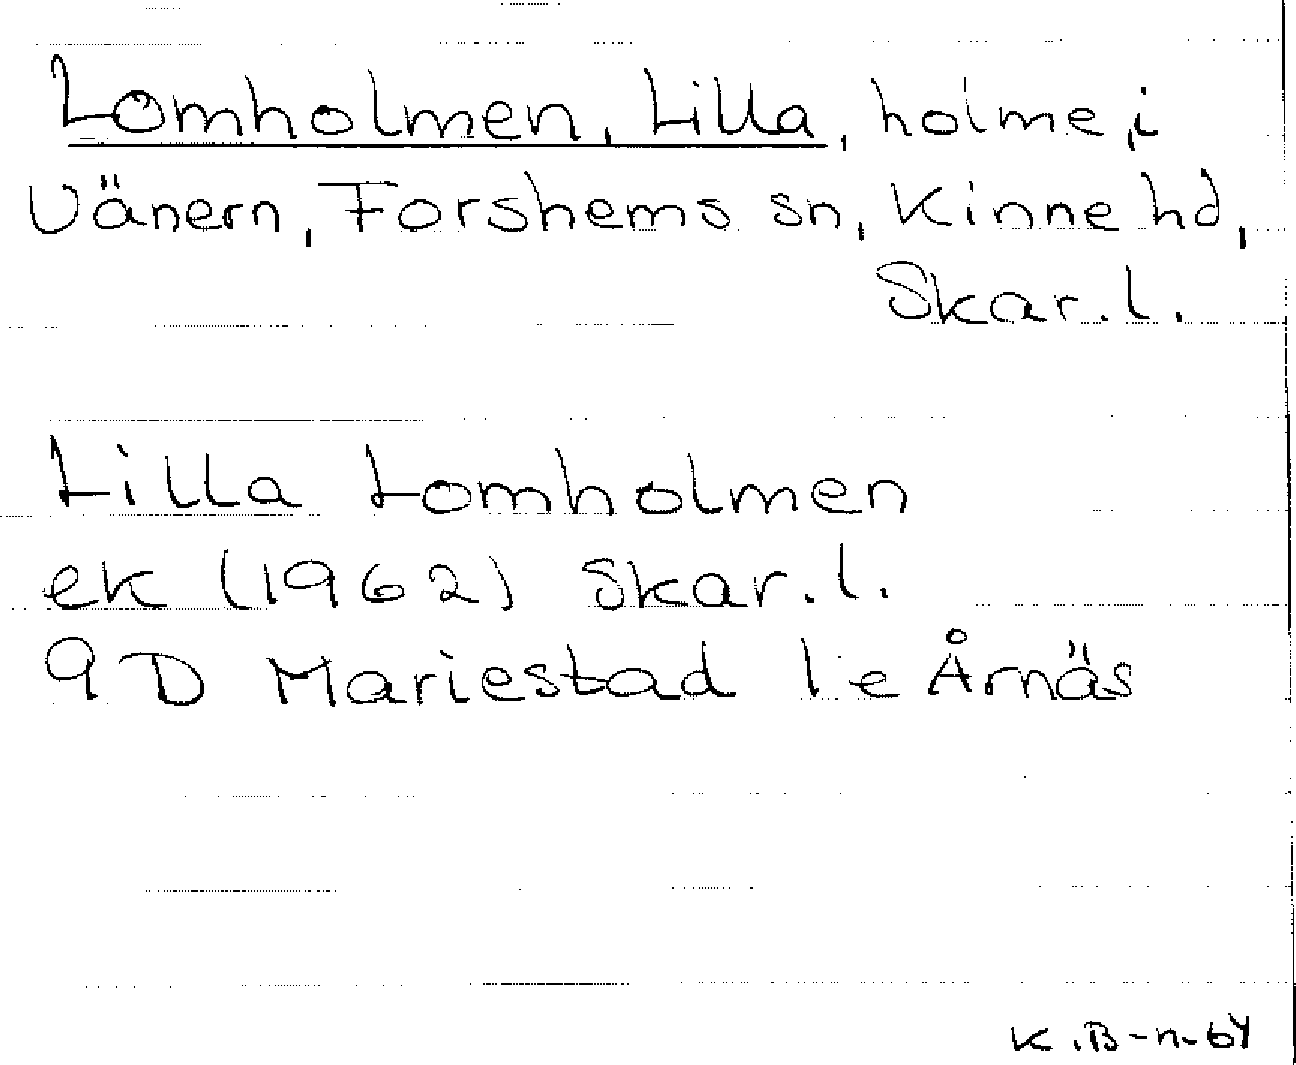 Lomholmen, Lilla, holme, i
Vänern, Forshems sn, Kinne hd,
Skar. l.
Lilla Lomholmen
ek (1962) Skar. l.
9D Mariestad 1e Årnäs
K. B-n. 64